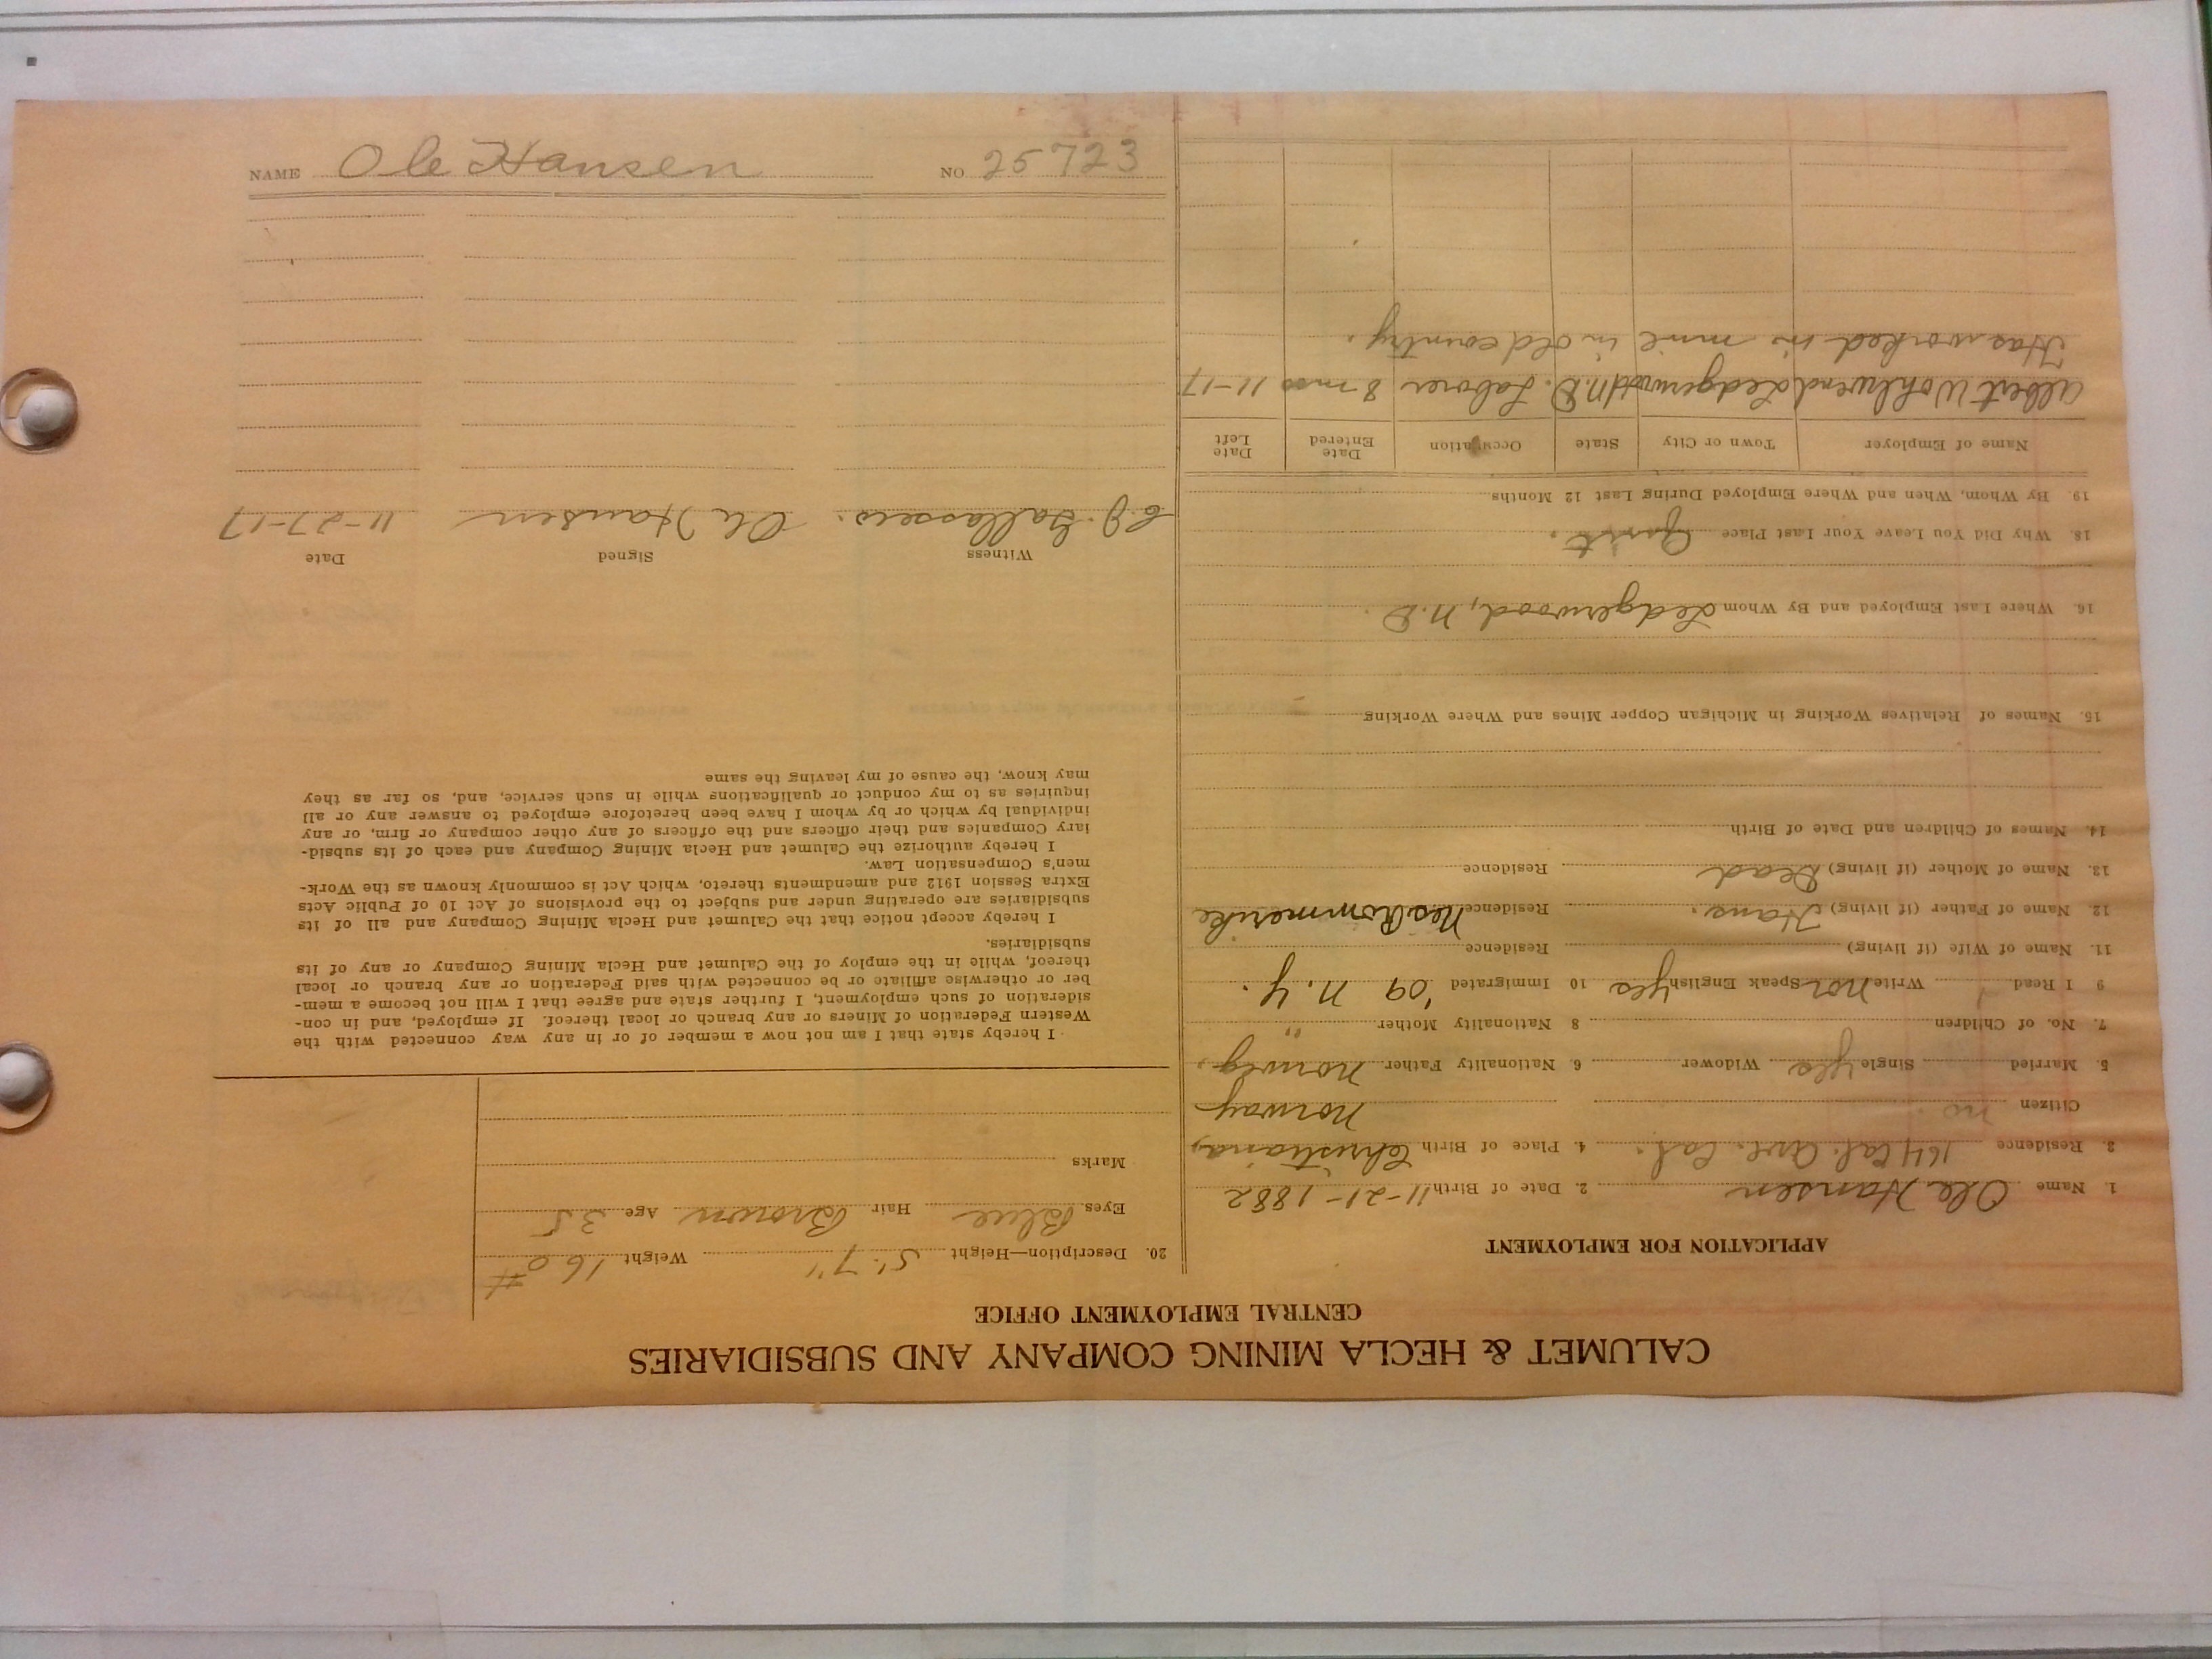 CALUMET & HECLA MINING COMPANY AND SUBSIDIARIES
CENTRAL EMPLOYMENT OFFICE
APPLICATION FOR EMPLOYMENT
1. Name Ole Hansen 2. Date of Birth 11-21-1882
3. Residence 164 Cal. Ave. Cal. 4. Place of Birth Christiana,
Citizen no. Norway
5. Married Single yes Widower 6. Nationality Father Norweg.
7. No. of Children 8 Nationality Mother "
9 I Read Write Nor Speak English yes 10 Immigrated '09 N.Y.
11. Name of Wife (if living) Residence
12. Name of Father (if living) Hans. Residence Nes Rommerike
13. Name of Mother (if living) Dead Residence
14. Names of Children and Date of Birth
15. Names of Relatives Working in Michigan Copper Mines and Where Working
16. Where Last Employed and By Whom Ledgerwood, N.D.
18. Why Did You Leave Your Last Place Quit.
19. By Whom, When and Where Employed During Last 12 Months
Name of Employer Town or City State Occupation Date Entered Date Left
Albert Wohlwend Ledgerwood N.D. Laborer 8 mos 11-17
Has worked in mine in old country.
20. Description—Height 5' 7" Weight 160 #
Eyes Blue Hair Brown Age 35
Marks
I hereby state that I am not now a member of or in any way connected with the
Western Federation of Miners or any branch or local thereof. If employed, and in con-
sideration of such employment, I further state and agree that I will not become a mem-
ber or otherwise affiliate or be connected with said Federation or any branch or local
thereof, while in the employ of the Calumet and Hecla Mining Company or any of its
subsidiaries.
I hereby accept notice that the Calumet and Hecla Mining Company and all of its
subsidiaries are operating under and subject to the provisions of Act 10 of Public Acts
Extra Session 1912 and amendments thereto, which Act is commonly known as the Work-
men's Compensation Law.
I hereby authorize the Calumet and Hecla Mining Company and each of its subsid-
iary Companies and their officers and the officers of any other company or firm, or any
individual by which or by whom I have been heretofore employed to answer any or all
inquiries as to my conduct or qualifications while in such service, and, so far as they
may know, the cause of my leaving the same
Witness Signed Date
Ole Hansen 11-27-17
NAME Ole Hansen NO 25723